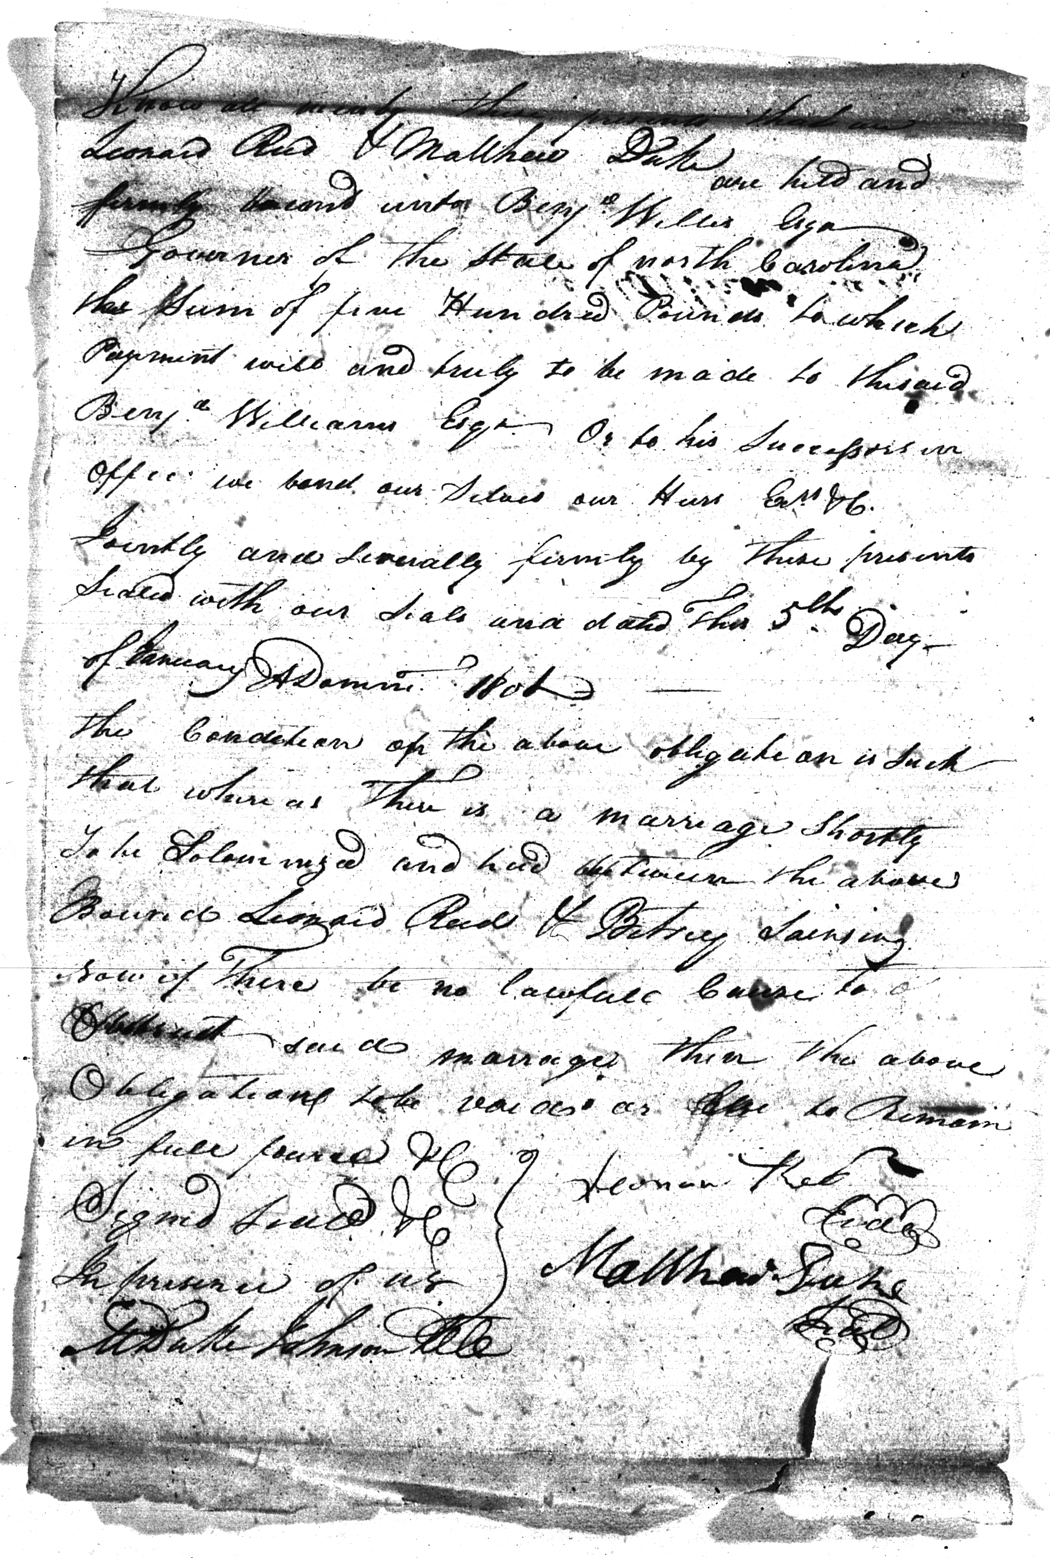 Know all men by these presents that we
Leonard Reed & Matthew Duke are held and
firmly bound unto Benja Willis Esqr
Governor of the State of north Carolina
the Sum of five Hundred Pounds to which
Payment will and truly to be made to thesaid
Benja Williams Esqr Or to his Successors in
Offic we bond our Selves our Hirs Exrs &C.
Jointly and Severally firmly by these presents
Sealed with our Seals and dated This 5th Day
of January ADomini 1801
the Condition of the above obligation is Such
that whereas There is a marriage Shortly
To be Solomnized and had between the above
Bound Leonard Reed & Betsey
now if There be no lawfull Cause to
Obstruct said marriage then the above
Obligation to be void or Else to Remain
in full fource &C
Signd Seald &C
In presence of us
Leonard Reed
Seal
Matthew Duke
Seal
Duke Johnson